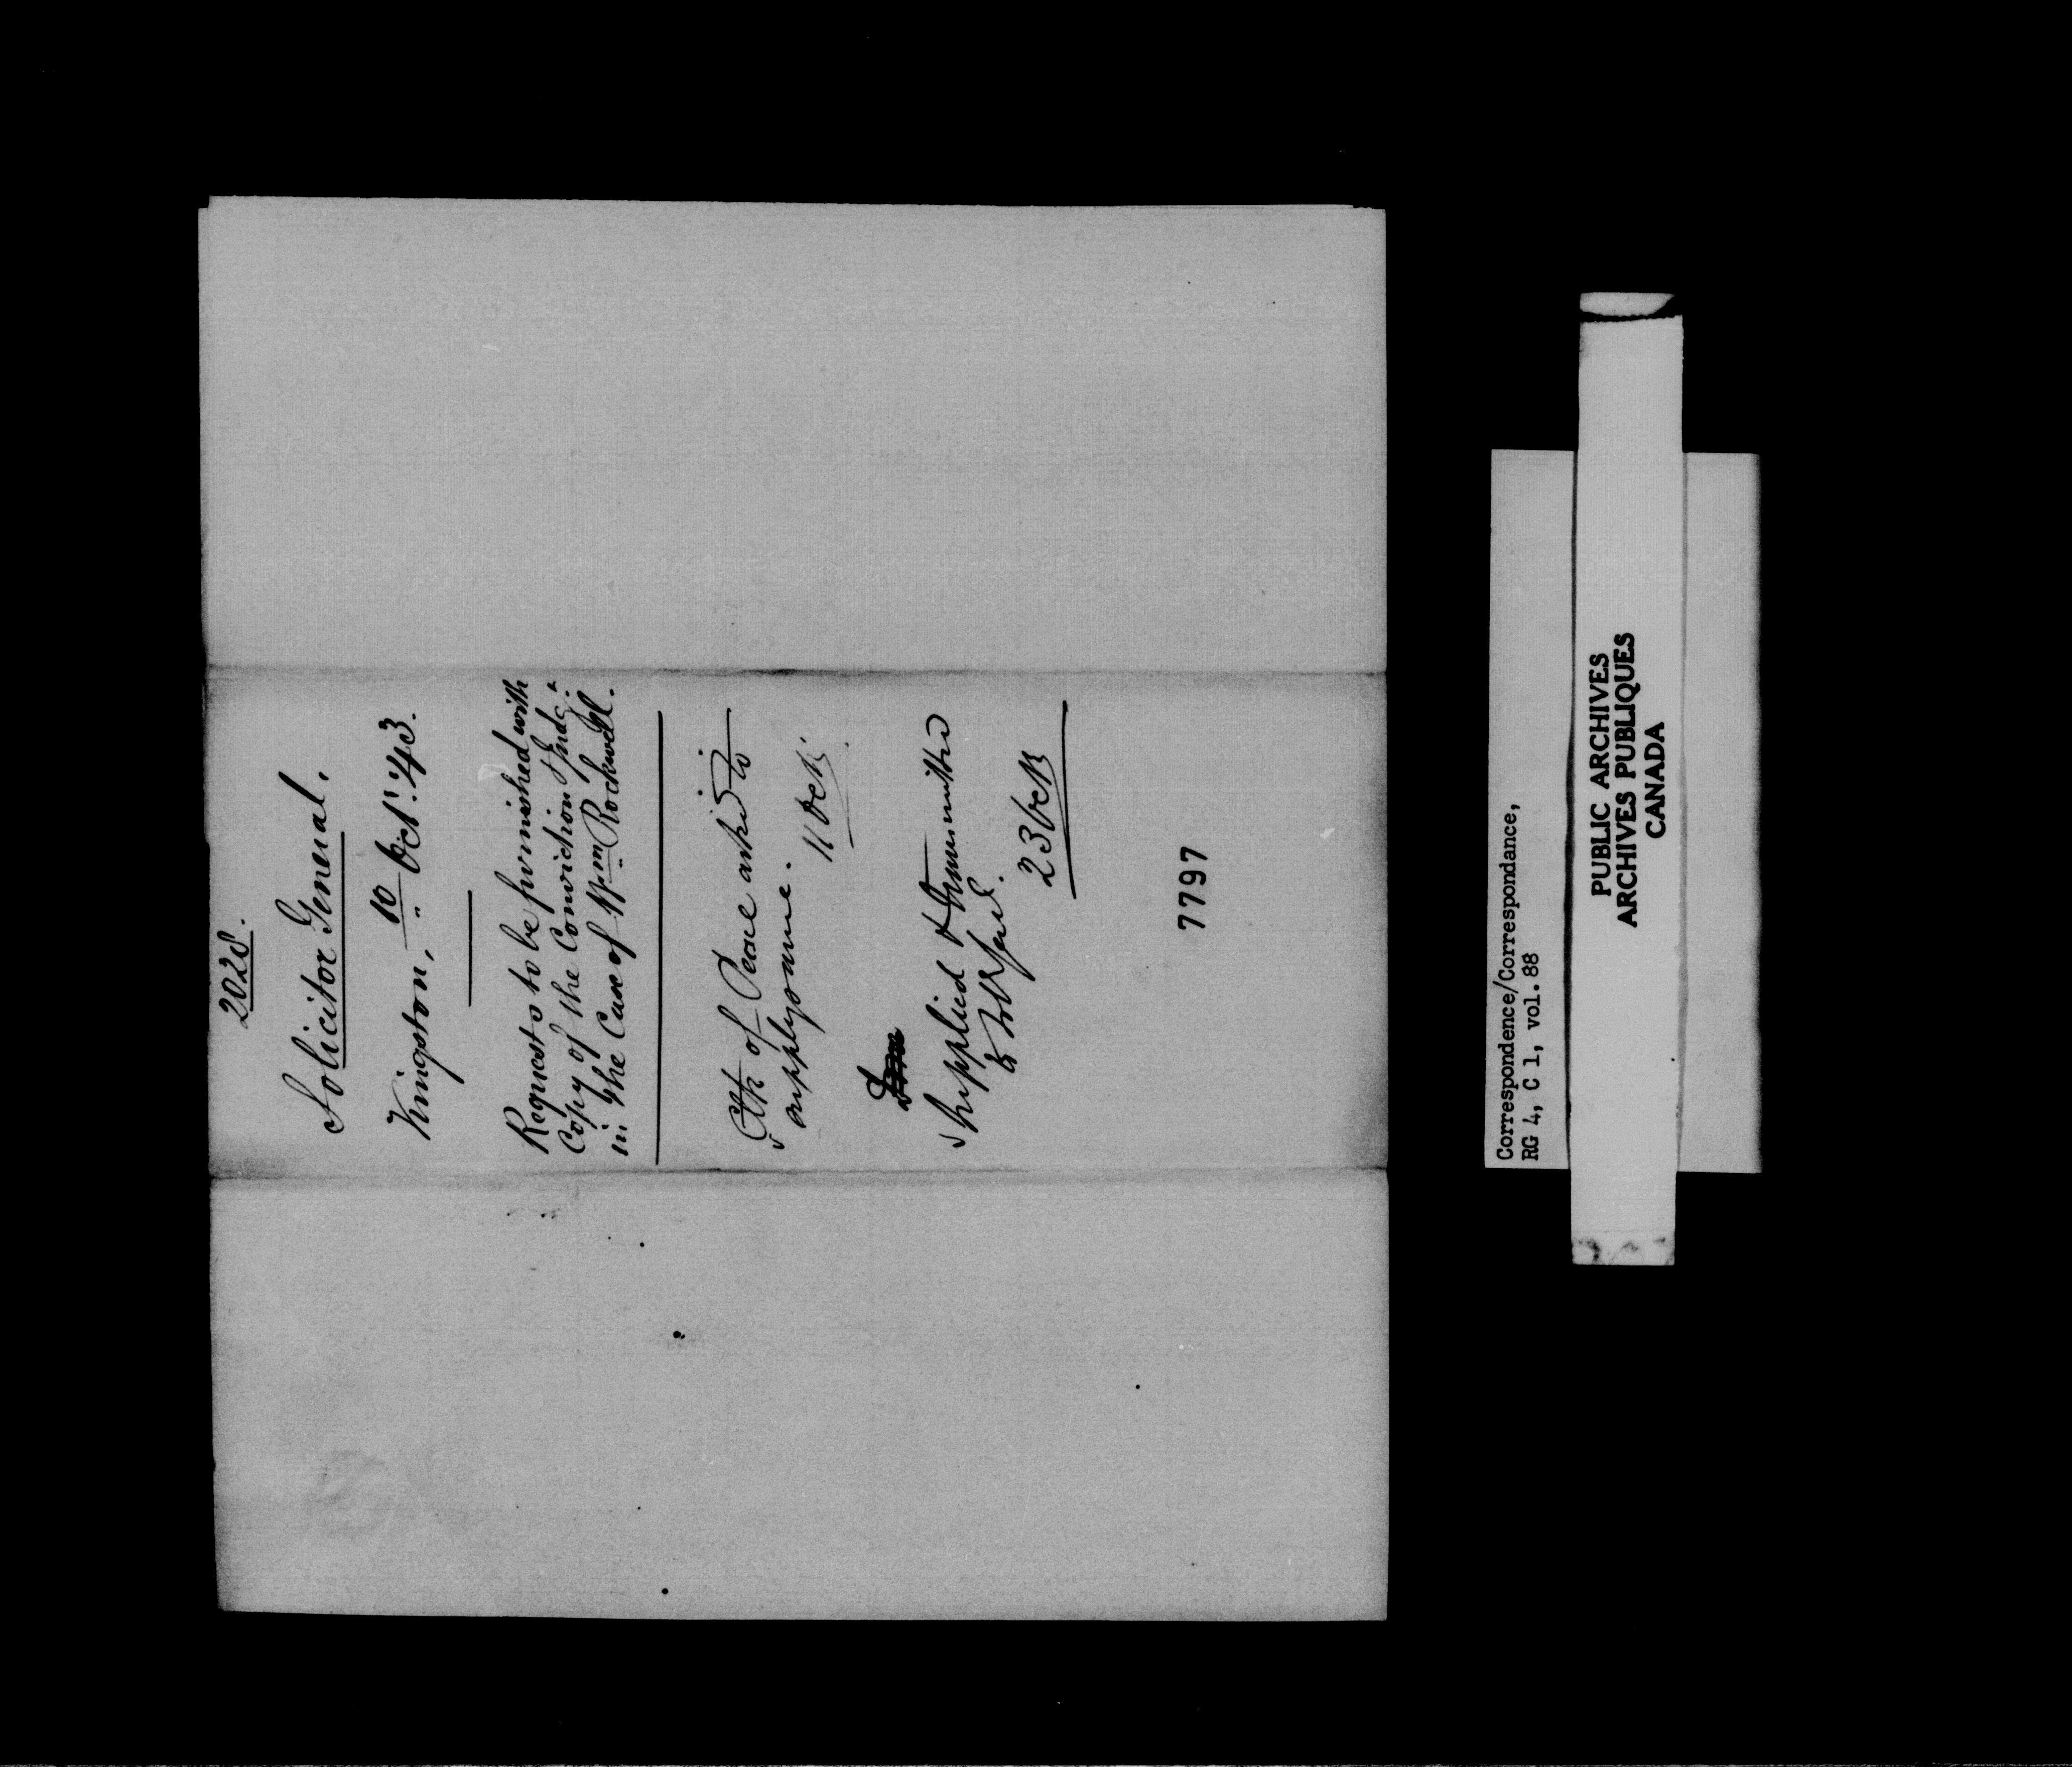 2028.
Solicitor General.
Kingston, 10 Oct: '43.
Requests to be furnished with
Copy of the Conviction & Judgt.
in the Case of Wm Rockwell.
Clk of Peace asked to
supply same.
11 Octr
Supplied & transmitted
to
23 Octr
7797
Correspondence/Correspondance,
RG 4, C 1, vol. 88
PUBLIC ARCHIVES
ARCHIVES PUBLIQUES
CANADA